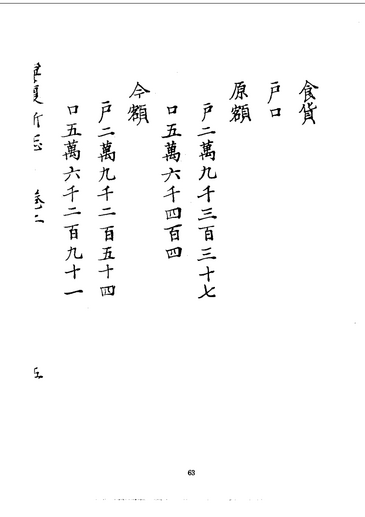 食貨
戶口
原額
戶二萬九千三百三十七
口五萬六千四百四
今額
戶二萬九千二百五十四
口五萬六千二百九十一
63